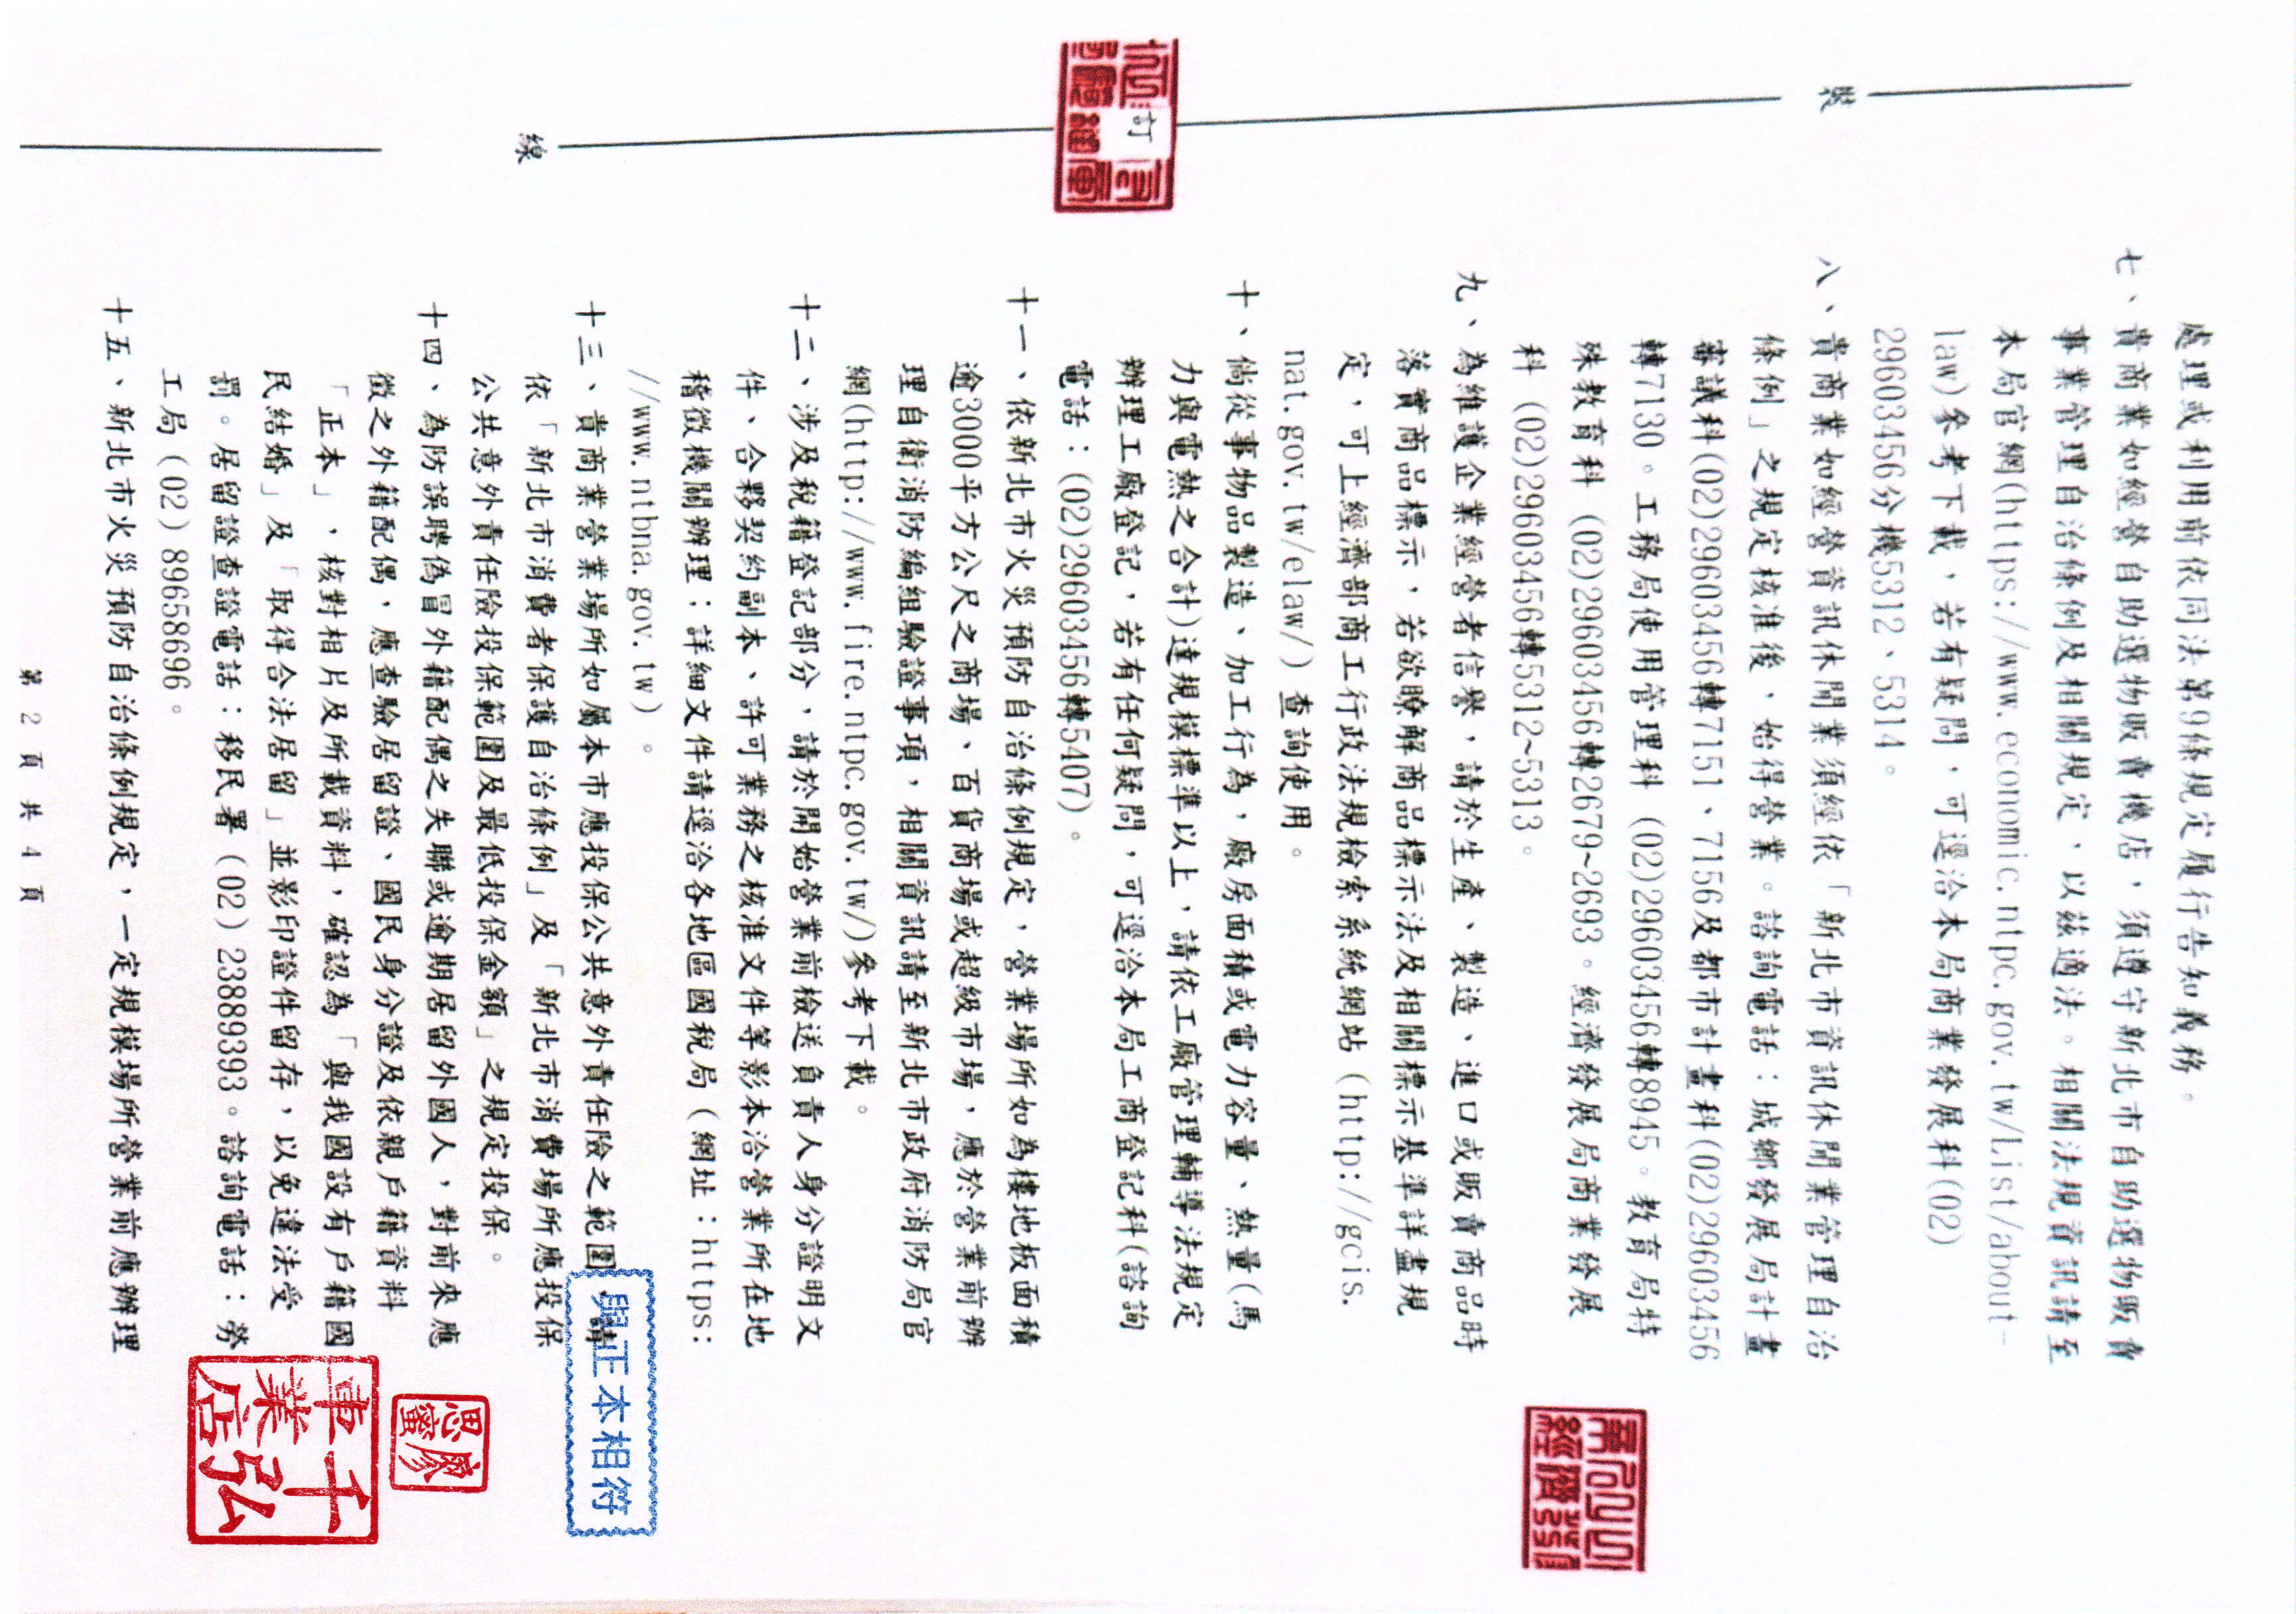 處理或利用前依同法第9條規定履行告知義務。
七、貴商業如經營自助選物販賣機店，須遵守新北市自助選物販賣
事業管理自治條例及相關規定，以茲適法。相關法規資訊請至
本局官網(https://www.economic.ntpc.gov.tw/List/about-
law)參考下載，若有疑問，可逕洽本局商業發展科(02)
29603456分機5312、5314。
八、貴商業如經營資訊休閒業須經依「新北市資訊休閒業管理自治
條例」之規定核准後，始得營業。諮詢電話：城鄉發展局計畫
審議科(02)29603456轉7151、7156及都市計畫科(02)29603456
轉7130。工務局使用管理科 (02)29603456轉8945。教育局特
殊教育科 (02)29603456轉2679~2693。經濟發展局商業發展
科 (02)29603456轉5312~5313。
九、為維護企業經營者信譽，請於生產、製造、進口或販賣商品時
落實商品標示，若欲瞭解商品標示法及相關標示基準詳盡規
定，可上經濟部商工行政法規檢索系統網站 (http://gcis.
nat.gov.tw/elaw/) 查詢使用。
十、倘從事物品製造、加工行為，廠房面積或電力容量、熱量(馬
力與電熱之合計)達規模標準以上，請依工廠管理輔導法規定
辦理工廠登記，若有任何疑問，可逕洽本局工商登記科(諮詢
電話：(02)29603456轉5407)。
十一、依新北市火災預防自治條例規定，營業場所如為樓地板面積
逾3000平方公尺之商場、百貨商場或超級市場，應於營業前辦
理自衛消防編組驗證事項，相關資訊請至新北市政府消防局官
網(http://www.fire.ntpc.gov.tw/)參考下載。
十二、涉及稅籍登記部分，請於開始營業前檢送負責人身分證明文
件、合夥契約副本、許可業務之核准文件等影本洽營業所在地
稽徵機關辦理；詳細文件請逕洽各地區國稅局 (網址：https:
//www.ntbna.gov.tw) 。
十三、貴商業營業場所如屬本市應投保公共意外責任險之範圍，請
依「新北市消費者保護自治條例」及「新北市消費場所應投保
公共意外責任險投保範圍及最低投保金額」之規定投保。
十四、為防誤聘偽冒外籍配偶之失聯或逾期居留外國人，對前來應
徵之外籍配偶，應查驗居留證、國民身分證及依親戶籍資料
「正本」，核對相片及所載資料，確認為「與我國設有戶籍國
民結婚」及「取得合法居留」並影印證件留存，以免違法受
罰。居留證查證電話：移民署 (02) 23889393。諮詢電話：勞
工局 (02) 89658696。
十五、新北市火災預防自治條例規定，一定規模場所營業前應辦理
第 2 頁 共 4 頁
裝
訂
線
與正本相符
千弘
車業店
廖
思蜜